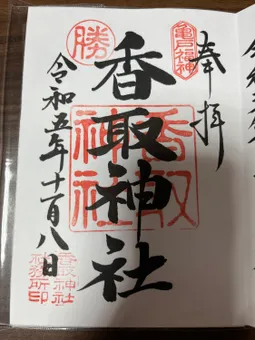 奉拝
亀戸福神
香取神社
香取神社
勝
令和五年十一月八日
香取神社
社務所印